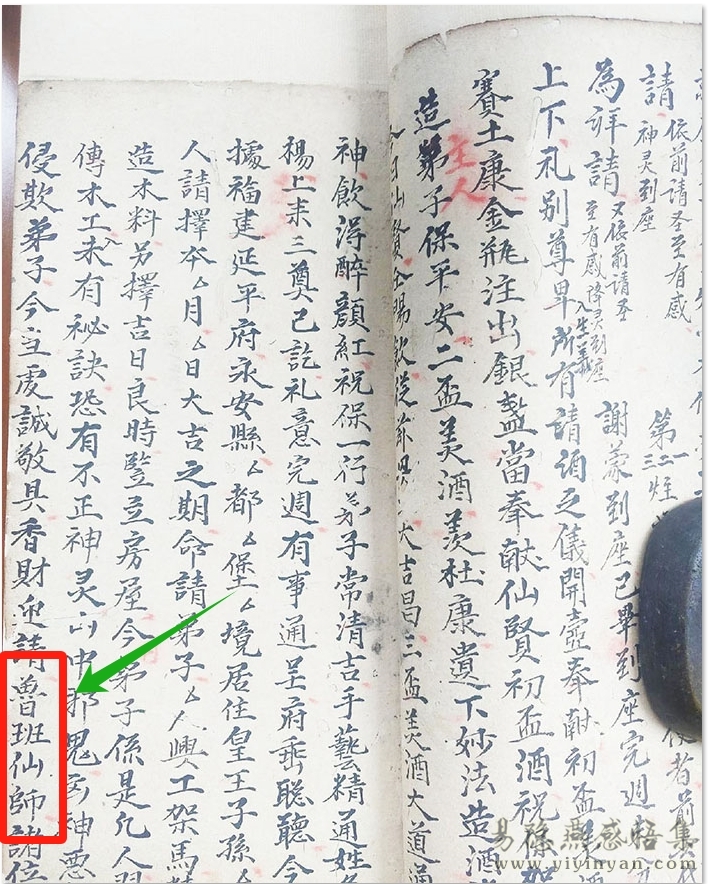 請 依前請圣至有感
神灵到座
第一二三炷
為詳請 又依前請圣
至有感降灵到座
謝蒙到座已畢到座完週
上下礼别尊卑所有請酒之儀開壺奉献初盃
賽土康金瓶注出銀盞當奉献仙賢初盃酒祝
主人
造弟子保平安二盃美酒羨杜康遺下妙法造酒
大吉昌三盃美酒大道通
神飲淂醉顔紅祝保一行弟子常清吉手藝精通姓
楊上来三奠已訖礼意完週有事通呈府垂聡聽今
據福建延平府永安縣厶都厶堡厶境居住皇王子孫厶
人請擇本厶月厶日大吉之期命請弟子厶人興工架馬
造木料另擇吉日良時豎立房屋今弟子係是凡人
傳木工未入有秘訣恐有不正神灵山中邪鬼神悪
侵欺弟子今立虔誠敬具香財迎請魯班仙師諸位
易孫燕感悟集
www.yiyinyan.com